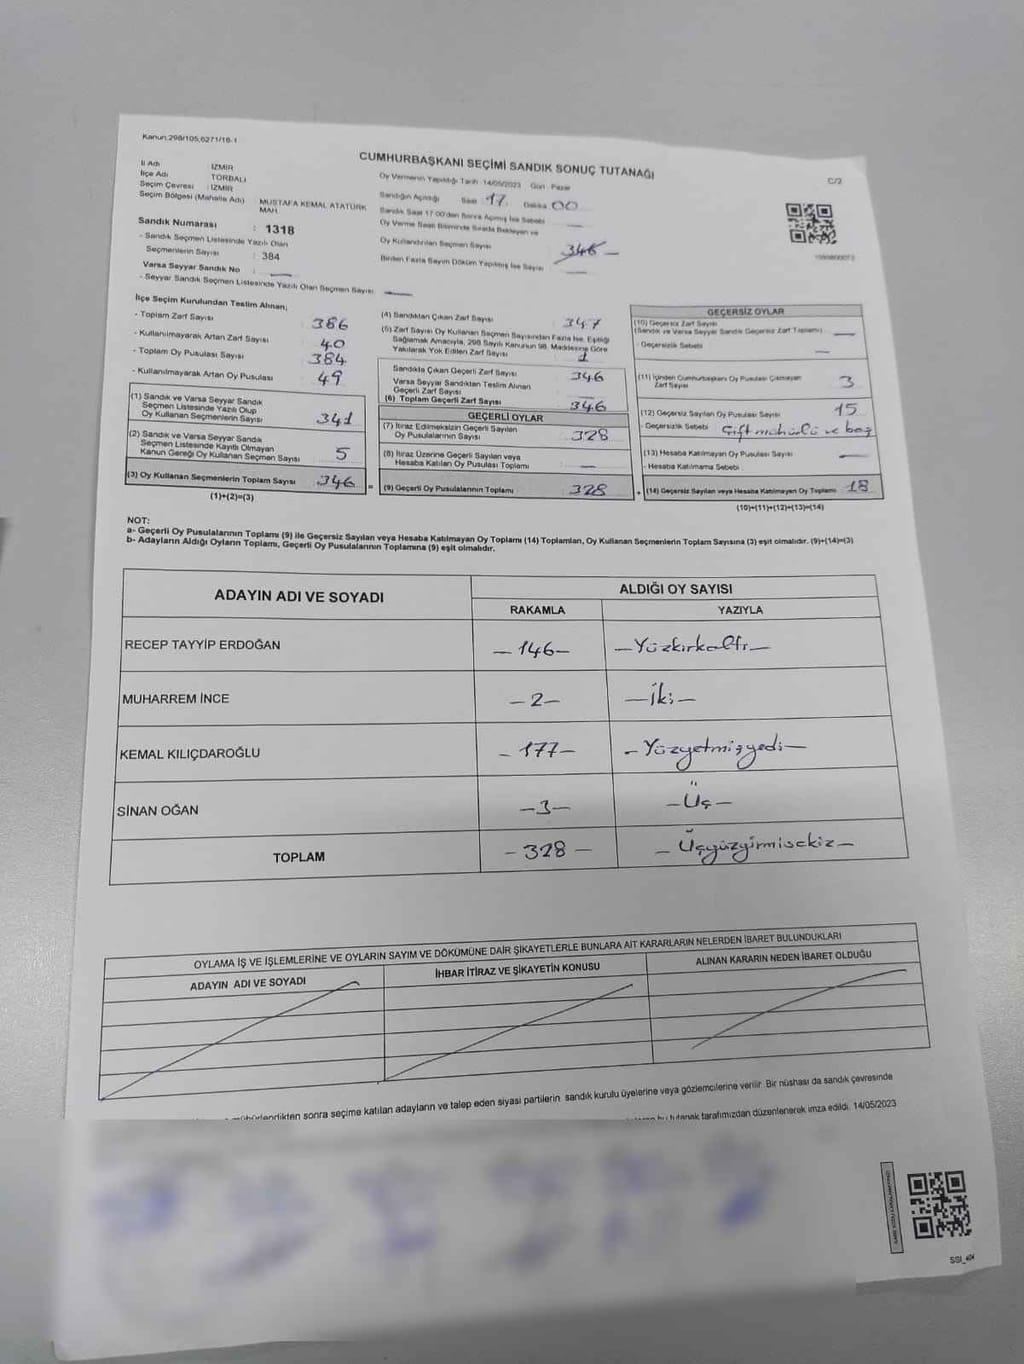 Kanun:298/105,6271/18-1
CUMHURBAŞKANI SEÇİMİ SANDIK SONUÇ TUTANAĞI
C/2
İl Adı : İZMİR
İlçe Adı : TORBALI
Seçim Çevresi : İZMİR
Seçim Bölgesi (Mahalle Adı) : MUSTAFA KEMAL ATATÜRK MAH.
Sandık Numarası : 1318
- Sandık Seçmen Listesinde Yazılı Olan
Seçmenlerin Sayısı : 384
Varsa Seyyar Sandık No : —
- Seyyar Sandık Seçmen Listesinde Yazılı Olan Seçmen Sayısı: —
Oy Vermenin Yapıldığı Tarih :14/05/2023 Gün : Pazar
Sandığın Açıldığı Saat 17. Dakika 00
Sandık Saat 17:00'den Sonra Açılmış İse Sebebi —
Oy Verme Saati Bitiminde Sırada Bekleyen ve
Oy Kullandırılan Seçmen Sayısı 346 —
Birden Fazla Sayım Döküm Yapılmış İse Sayısı —
İlçe Seçim Kurulundan Teslim Alınan;
- Toplam Zarf Sayısı 386
- Kullanılmayarak Artan Zarf Sayısı 40
- Toplam Oy Pusulası Sayısı 384
- Kullanılmayarak Artan Oy Pusulası 49
(1) Sandık ve Varsa Seyyar Sandık
Seçmen Listesinde Yazılı Olup
Oy Kullanan Seçmenlerin Sayısı 341
(2) Sandık ve Varsa Seyyar Sandık
Seçmen Listesinde Kayıtlı Olmayan
Kanun Gereği Oy Kullanan Seçmen Sayısı 5
(3) Oy Kullanan Seçmenlerin Toplam Sayısı 346
(1)+(2)=(3)
(4) Sandıktan Çıkan Zarf Sayısı 347
(5) Zarf Sayısı Oy Kullanan Seçmen Sayısından Fazla İse, Eşitliği
Sağlamak Amacıyla, 298 Sayılı Kanunun 98. Maddesine Göre
Yakılarak Yok Edilen Zarf Sayısı 1
Sandıkla Çıkan Geçerli Zarf Sayısı 346
Varsa Seyyar Sandıktan Teslim Alınan
Geçerli Zarf Sayısı —
(6) Toplam Geçerli Zarf Sayısı 346
GEÇERLİ OYLAR
(7) İtiraz Edilmeksizin Geçerli Sayılan
Oy Pusulalarının Sayısı 328
(8) İtiraz Üzerine Geçerli Sayılan veya
Hesaba Katılan Oy Pusulası Toplamı —
= (9) Geçerli Oy Pusulalarının Toplamı 328
GEÇERSİZ OYLAR
(10) Geçersiz Zarf Sayısı
(Sandık ve Varsa Seyyar Sandık Geçersiz Zarf Toplamı) —
- Geçersizlik Sebebi —
(11) İçinden Cumhurbaşkanı Oy Pusulası Çıkmayan
Zarf Sayısı 3
(12) Geçersiz Sayılan Oy Pusulası Sayısı 15
- Geçersizlik Sebebi Çift mühürlü ve boş
(13) Hesaba Katılmayan Oy Pusulası Sayısı —
- Hesaba Katılmama Sebebi
+ (14) Geçersiz Sayılan veya Hesaba Katılmayan Oy Toplamı 18
(10)+(11)+(12)+(13)=(14)
NOT:
a- Geçerli Oy Pusulalarının Toplamı (9) ile Geçersiz Sayılan veya Hesaba Katılmayan Oy Toplamı (14) Toplamları, Oy Kullanan Seçmenlerin Toplam Sayısına (3) eşit olmalıdır. (9)+(14)=(3)
b- Adayların Aldığı Oyların Toplamı, Geçerli Oy Pusulalarının Toplamına (9) eşit olmalıdır.
ADAYIN ADI VE SOYADI
ALDIĞI OY SAYISI
RAKAMLA YAZIYLA
RECEP TAYYİP ERDOĞAN — 146 — — Yüzkırkaltı —
MUHARREM İNCE — 2 — — İki —
KEMAL KILIÇDAROĞLU — 177 — — Yüzyetmişyedi —
SİNAN OĞAN — 3 — — Üç —
TOPLAM — 328 — — Üçyüzyirmisekiz —
OYLAMA İŞ VE İŞLEMLERİNE VE OYLARIN SAYIM VE DÖKÜMÜNE DAİR ŞİKAYETLERLE BUNLARA AİT KARARLARIN NELERDEN İBARET BULUNDUKLARI
ADAYIN ADI VE SOYADI İHBAR İTİRAZ VE ŞİKAYETİN KONUSU ALINAN KARARIN NEDEN İBARET OLDUĞU
sonra seçime katılan adayların ve talep eden siyasi partilerin sandık kurulu üyelerine veya gözlemcilerine verilir. Bir nüshası da sandık çevresinde
bu tutanak tarafımızdan düzenlenerek imza edildi. 14/05/2023